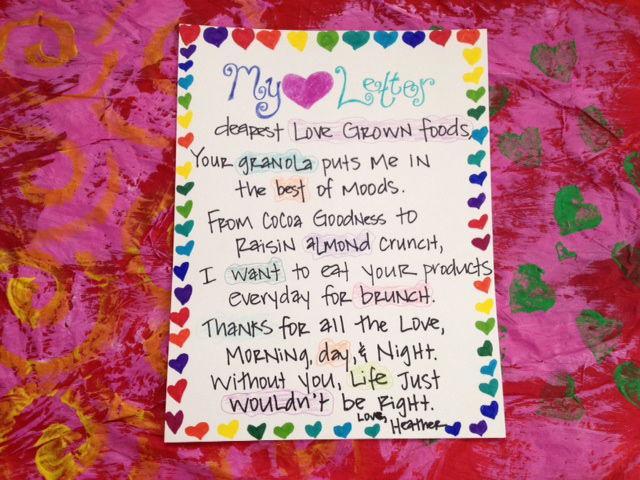 My Letter
dearest Love Grown Foods,
Your granola puts me in
the best of moods.
From Cocoa Goodness to
Raisin Almond Crunch,
I want to eat your products
everyday for brunch.
Thanks for all the Love,
Morning, day, & Night.
Without you, Life Just
wouldn't be Right.
Love,
Heather